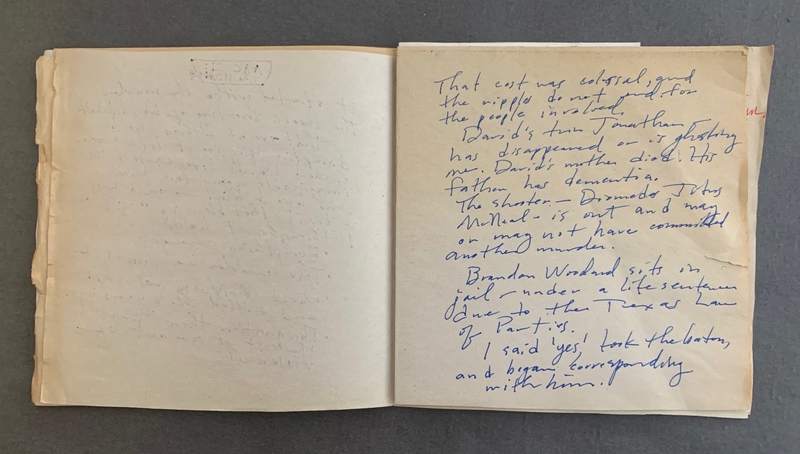 That cost was colossal, and
the ripples do not end for
the people involved.
David's twin Jonathan
has disappeared or is ghosting
me. David's mother died. His
father has dementia.
The shooter – Diomedo
McNeal – is out and may
or may not have committed
another murder.
Brandon Woodard sits in
jail – under a life sentence
due to the Texas Law
of Parties.
I said 'yes,' took the baton,
and began corresponding
with him.